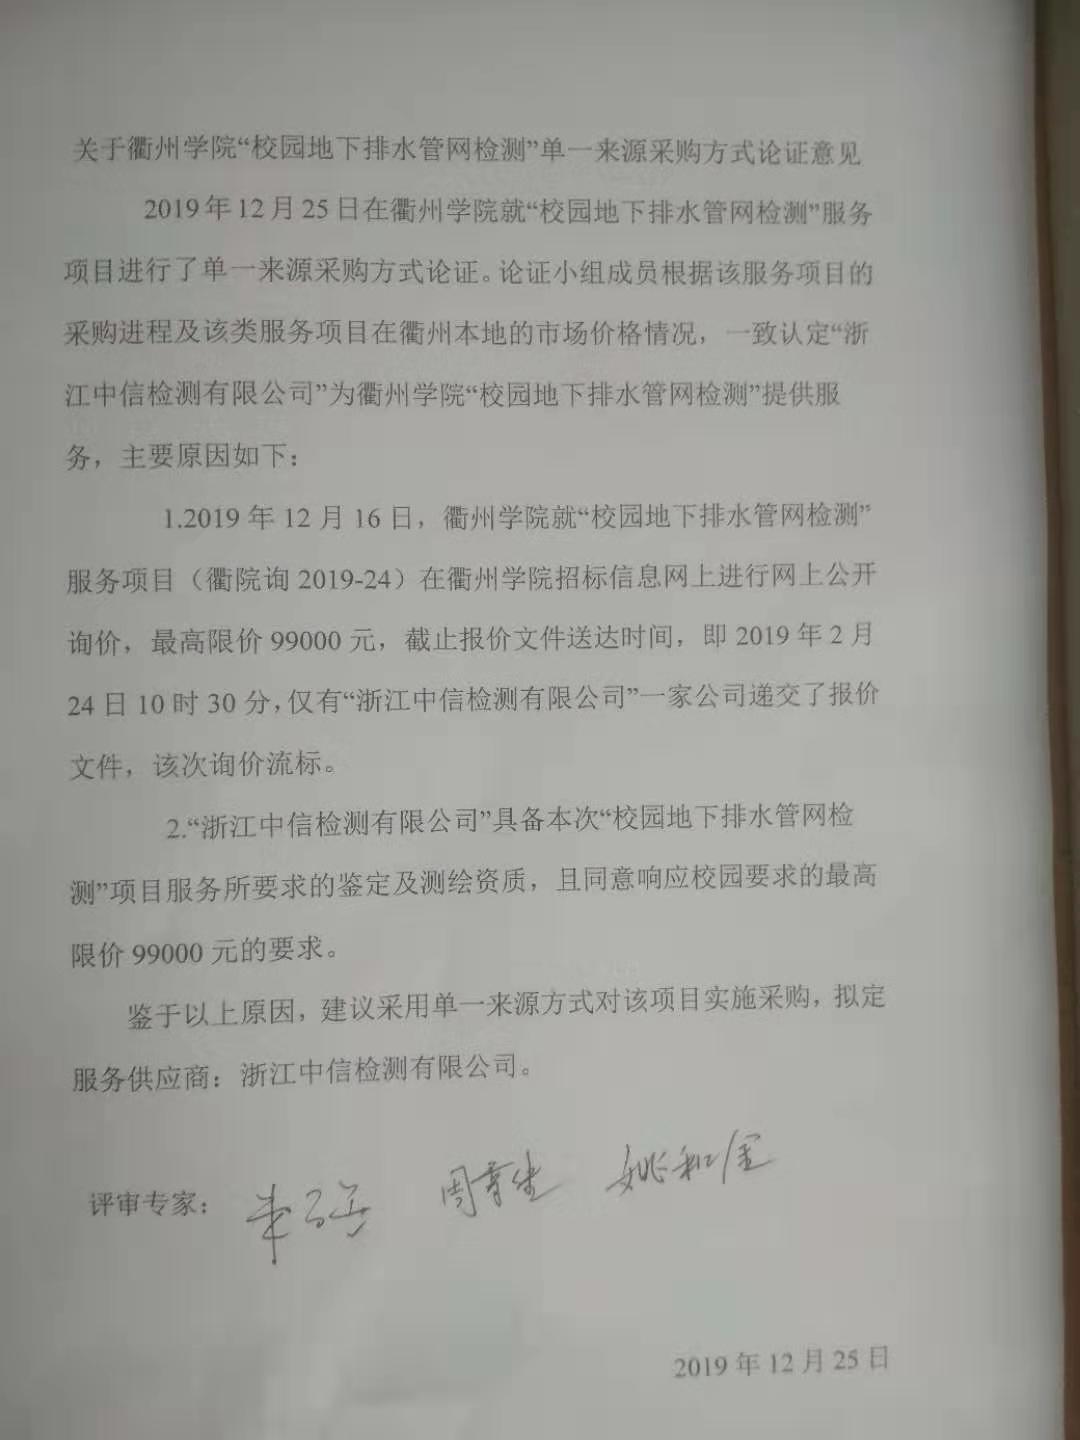 关于衢州学院“校园地下排水管网检测”单一来源采购方式论证意见
2019年12月25日在衢州学院就“校园地下排水管网检测”服务
项目进行了单一来源采购方式论证。论证小组成员根据该服务项目的
采购进程及该类服务项目在衢州本地的市场价格情况，一致认定“浙
江中信检测有限公司”为衢州学院“校园地下排水管网检测”提供服
务，主要原因如下：
1.2019年12月16日，衢州学院就“校园地下排水管网检测”
服务项目（衢院询2019-24）在衢州学院招标信息网上进行网上公开
询价，最高限价99000元，截止报价文件送达时间，即2019年2月
24日10时30分，仅有“浙江中信检测有限公司”一家公司递交了报价
文件，该次询价流标。
2.“浙江中信检测有限公司”具备本次“校园地下排水管网检
测”项目服务所要求的鉴定及测绘资质，且同意响应校园要求的最高
限价99000元的要求。
鉴于以上原因，建议采用单一来源方式对该项目实施采购，拟定
服务供应商：浙江中信检测有限公司。
评审专家： 姚和金
2019年12月25日